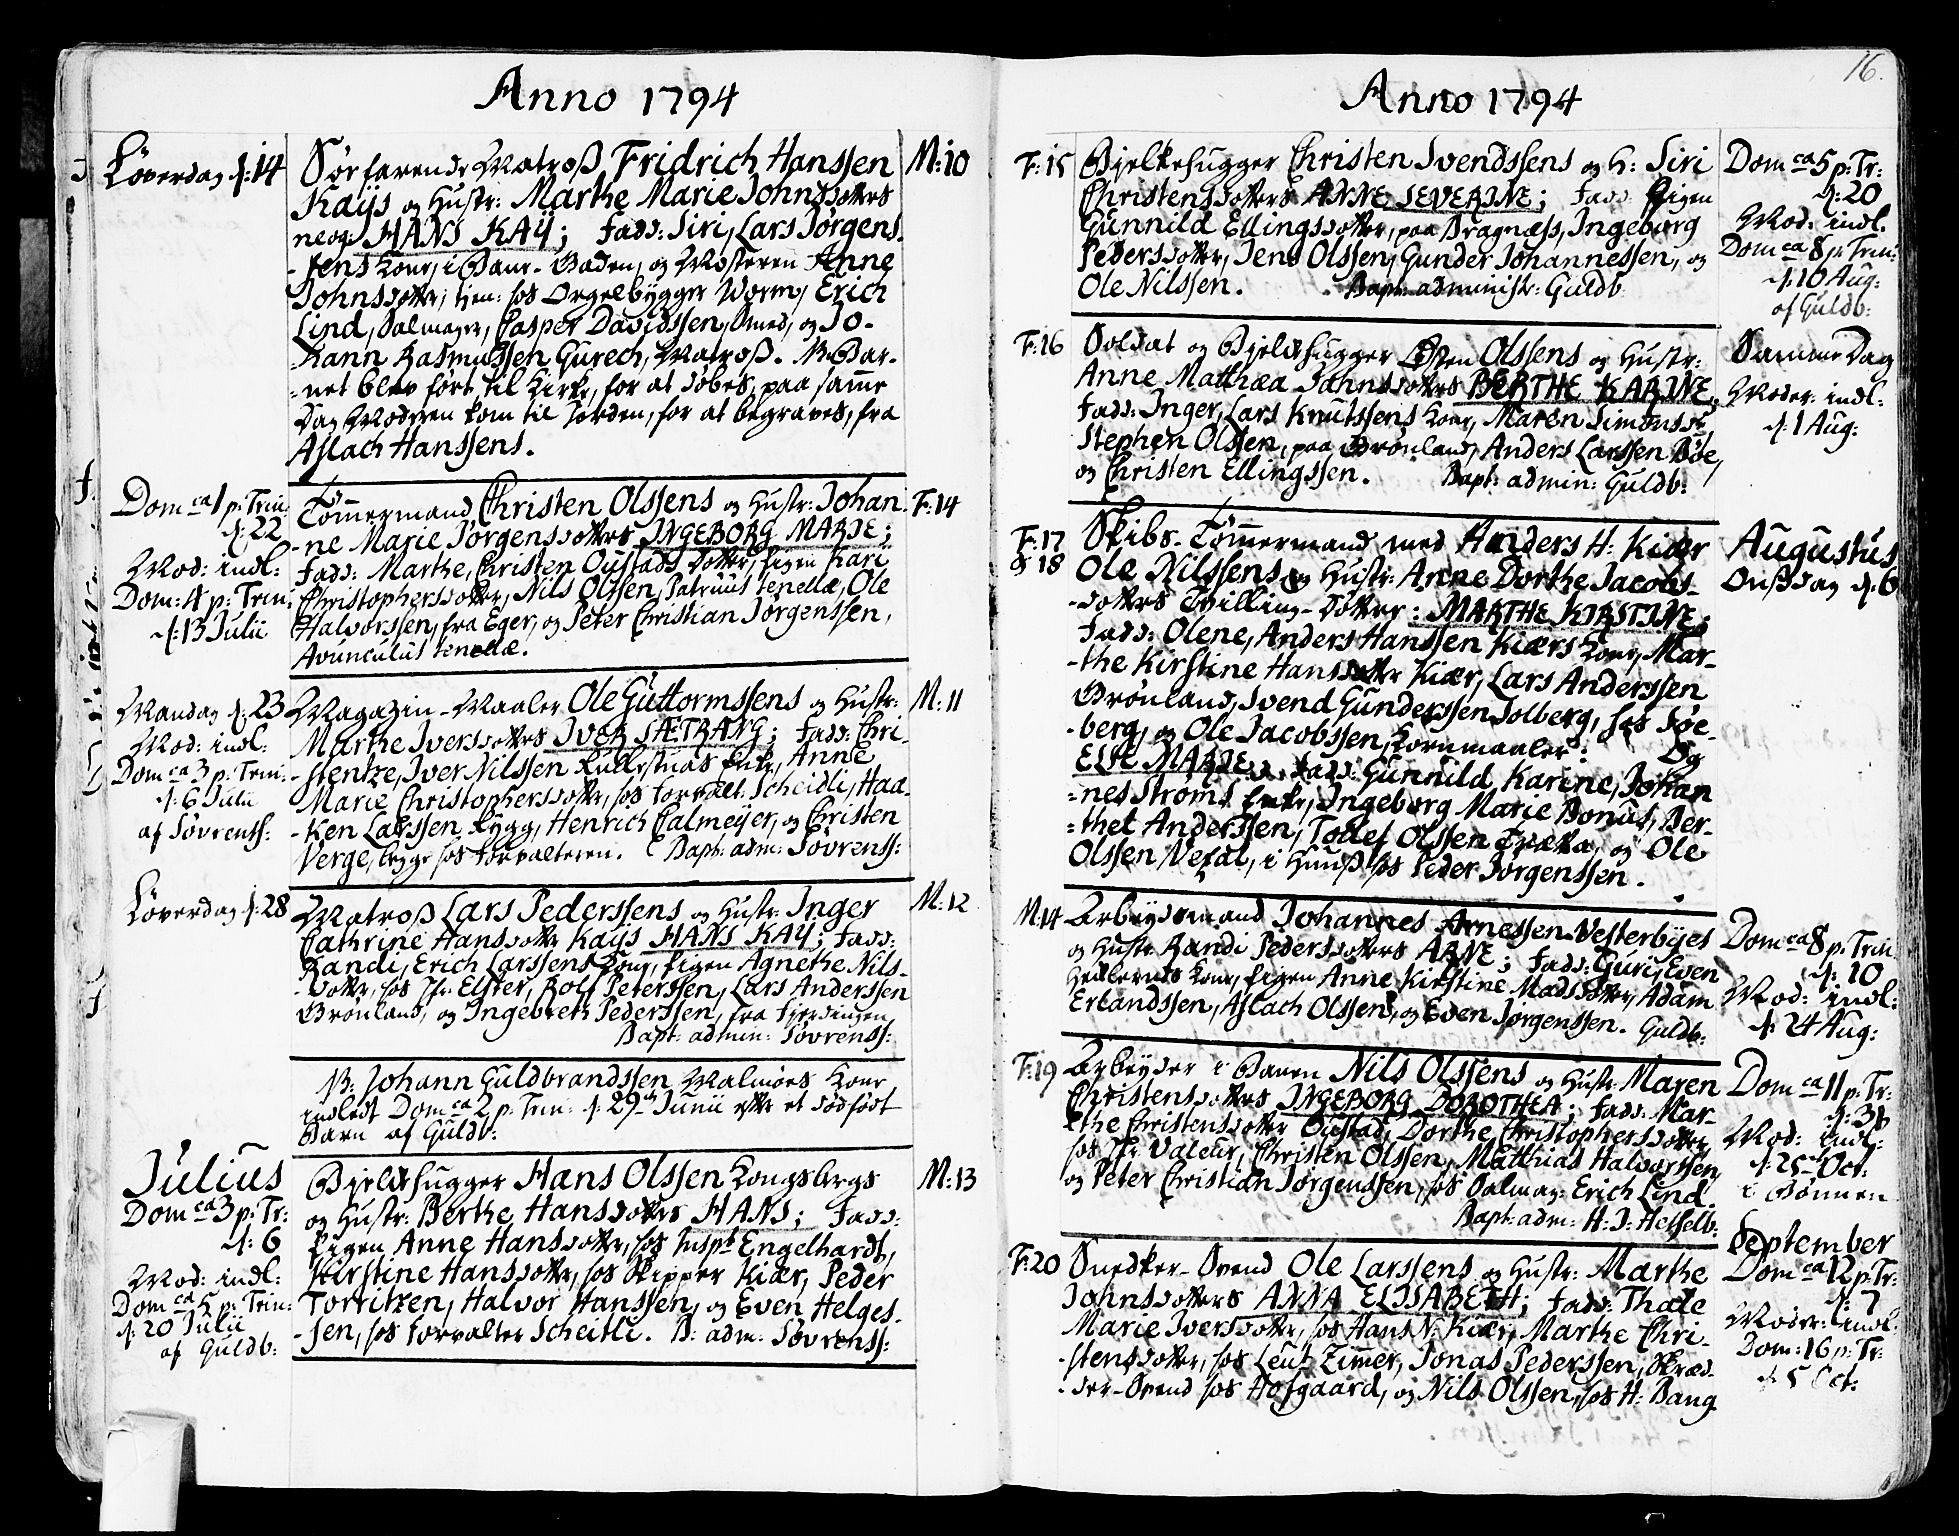 Anno 1794
Løverdag d: 14
Søefarende Matroß Fridrich Hanssen
M: 10
Kaÿs og Hustr: Marthe Marie Johnsdotters
neogr HANS KAŸ; Fadd: Siri, Lars Jørgens-
-sens Kone, i Baur-Gaden, og Mosteren Anne
Johnsdotter, tjen: hos Orgelbygger Worm, Erich
Lind, Salmager, Casper Davidssen, Smed, og Jo-
hann Rasmussen Gurech, Matroß. NB. Bar-
=net blev ført til Kirke, for at døbes, paa samme
Dag Moderen kom til Jorden, for at begraves, fra
Aslach Hanssens.
Dom ca 1 p: Trin:
d: 22
Mod: indl:
Dom: 4 p: Trin:
d: 13 Julii
Tømmermand Christen Olssens og Hustr: Johan
F: 14
-ne Marie Jørgensdotters INGEBORG MARIE;
Fadd: Marthe, Christen Oustads dotter, Pigen Kari
Christophersdotter, Nils Olssen, Patruus tenellæ, Ole
Halvorssen, fra Eger, og Peter Christian Jørgenssen,
Avunculus tenellæ.
Mandag d: 23
Mod: indl:
Dom ca 3 p: Trini:
d: 6 Julii
af Søvrensf:
Magazin-Maaler Ole Guttormssens og Hustr:
M: 11
Marthe Iversdotters IVER SÆTRANG; Fadd: Chri-
-stentze, Iver Nilssen Kullestads Enke, Anne
Marie Christophersdotter, hos Forvalt: Scheidli, Haa-
-ken Larssen Rygg, Henrich Calmeyer, og Christen
Verge, begge hos Forvalteren. Bapt: adm: Søvrenss:
Løverdag d: 28
Matroß Lars Pederssens og Hustr: Inger
M: 12
Cathrine Hansdotter Kaÿs HANS KAŸ; Fadd:
Randi, Erich Larssens Kone, Pigen Agnethe Nils-
-dotter, hos Hr: Elster, Rolf Peterssen, Lars Anderssen
Grønland, og Ingebreth Pederssen, fra Fjerdingen
Bapt: admin: Søvrenss:
NB: Johann Guldbrandssen Malmøes Kone
indledt Dom ca 2 p: Trin: d: 29de Junii efter et dødfødt
Barn af Guldb:
Julius
Dom ca 3 p: Tr:
d: 6
Mod: indl:
Dom ca 5 p: Trin:
d: 20 Julii
af Guldb:
Bjelkehugger Hans Olssen Kongsbergs
M: 13
og Hustr: Berthe Hansdotters HANS; Fadd:
Pigen Anne Hansdotter, hos Inspt Engelhardt,
Kirstine Hansdotter, hos Skipper Kiær, Peder
Torritzen, Halvor Hanssen, og Even Helges-
-sen, hos Forvalter Scheitli. B: adm: Søvrenss:
16.
Anno 1794
F: 15
Bjelkehugger Christen Svendssens og H: Siri
Christensdotters ANNE SEVERINE; Fadd: Pigen
Gunnild Ellingsdotter, paa Bragnæss, Ingeborg
Pedersdotter, Jens Olssen, Gunder Johannessen, og
Ole Nilssen. Bapt: administr: Guldb
Dom ca 5 p: Tr:
d: 20
Mod: indl.
Dom ca 8 p: Trin:
d: 10 Aug:
af Guldb:
F: 16
Soldat og Bjelkehugger Esten Olssens og Hustr:
Anne Matthæa Jahnsdotters BERTHE KARINE,
Fadd: Inger, Lars Knutssens Kone, Maren Simonsd:,
Stephen Olssen, paa Grønland, Anders Larssen Bøe,
og Christen Ellingssen. Bapt: admin: Guldb:
Samme Dag
Moder: indl:
d: 1 Aug:
F: 17
& 18
Skibs-Tømmermand med Anders H: Kiær
Ole Nilssens og Hustr: Anne Dorthe Jacobs-
-dotters Tvilling-Døtter: MARTHE KIRSTINE;
Fadd: Olene, Anders Hanssen Kiærs Kone, Mar-
-the Kirstine Hansdotter Kiær, Lars Anderssen
Grønland, Svend Gunderssen Solberg, hos Søe-
-berg, og Ole Jacobssen, Kornmaaler: Og
ELSE MARIE; Fadd: Gunnild Karine, Johan
=nes Strøms Enke, Ingeborg Marie Bonus, Ber-
=thel Anderssen, Tollef Olssen Træka, og Ole
Olssen Vefal, i Huuß hos Peder Jørgenssen.
Augustus
Onßdag d: 6
M: 14
Arbeydsmand Johannes Arnessen Vesterbyes
og Hustr: Randi Pedersdotters ARNE; Fadd: Guri, Even
Gullernes Kone, Pigen Anne Kirstine Madsdotter, Adam
Erlandssen, Aslach Olssen, og Even Jørgenssen. Guldb:
Dom ca 8 p: Trin
d: 10
Mod: indl:
d: 24 Aug:
F: 19
Arbeyder i Banen Nils Olssens og Hustr: Maren
Christensdotters INGEBORG DOROTHEA; Fadd: Mar-
-the Christensdotter Oustad, Dorthe Christophersdotter,
hos Hr: Valeur, Christen Olssen, Matthias Halvorssen,
og Peter Christian Jørgenssen, hos Salmag: Erich Lind.
Bapt: adm: H: J: Hetselb:
Dom ca 11 p: Tr:
d: 31
Mod: indl:
d: 25de Oct:
i Bønnen
F: 20
Snedker-Svend Ole Larssens og Hustr: Marthe
Johnsdotters ANNA ELISABETH; Fadd: Thale
Marie Iversdotter, hos Hans N: Kiær, Marthe Chri-
-stensdotter, hos Leut: Zimer, Jonas Pederssen, Skræd-
-der-Svend hos Hofgaard, og Nils Olssen, hos H: Bang
September
Dom ca 12 p: Tr:
d: 7
Moder: indl:
Dom: 16 p: Tr:
d: 5 Oct: